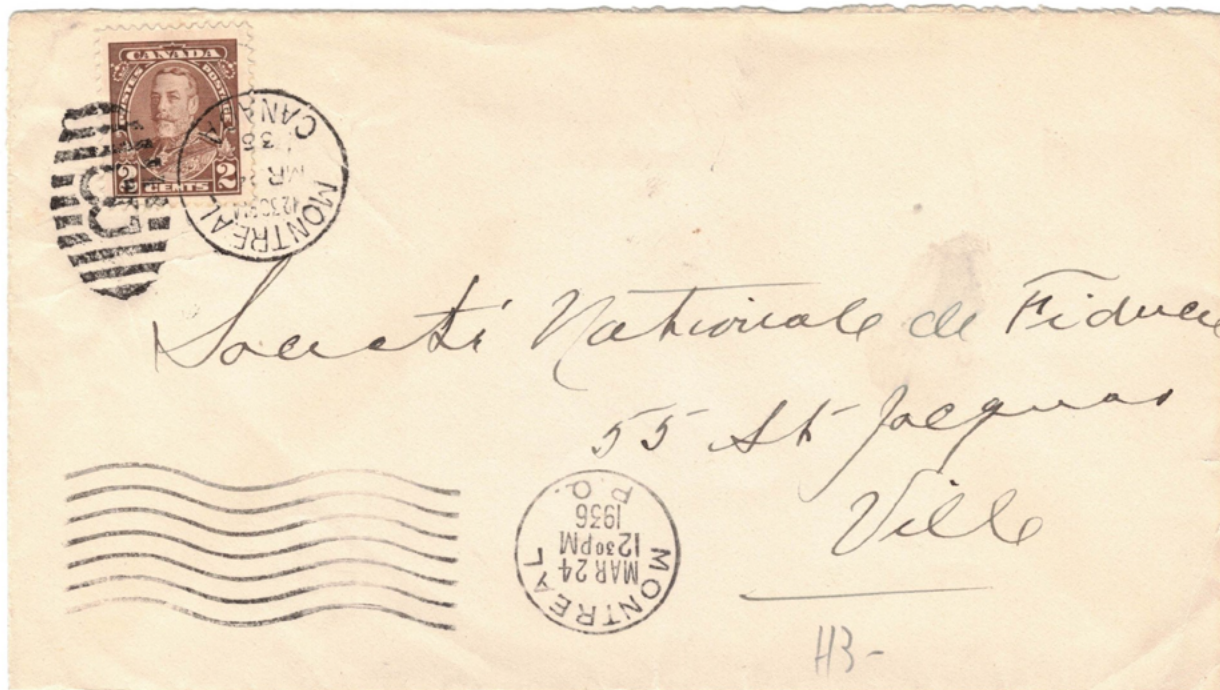 CANADA
POSTES POSTAGE
2 CENTS 2
MONTREAL
MR
CANADA
Société Nationale de Fiducie
55 St Jacques
Ville
MONTREAL
MAR 24
12 30 PM
1936
P.Q.
H3-